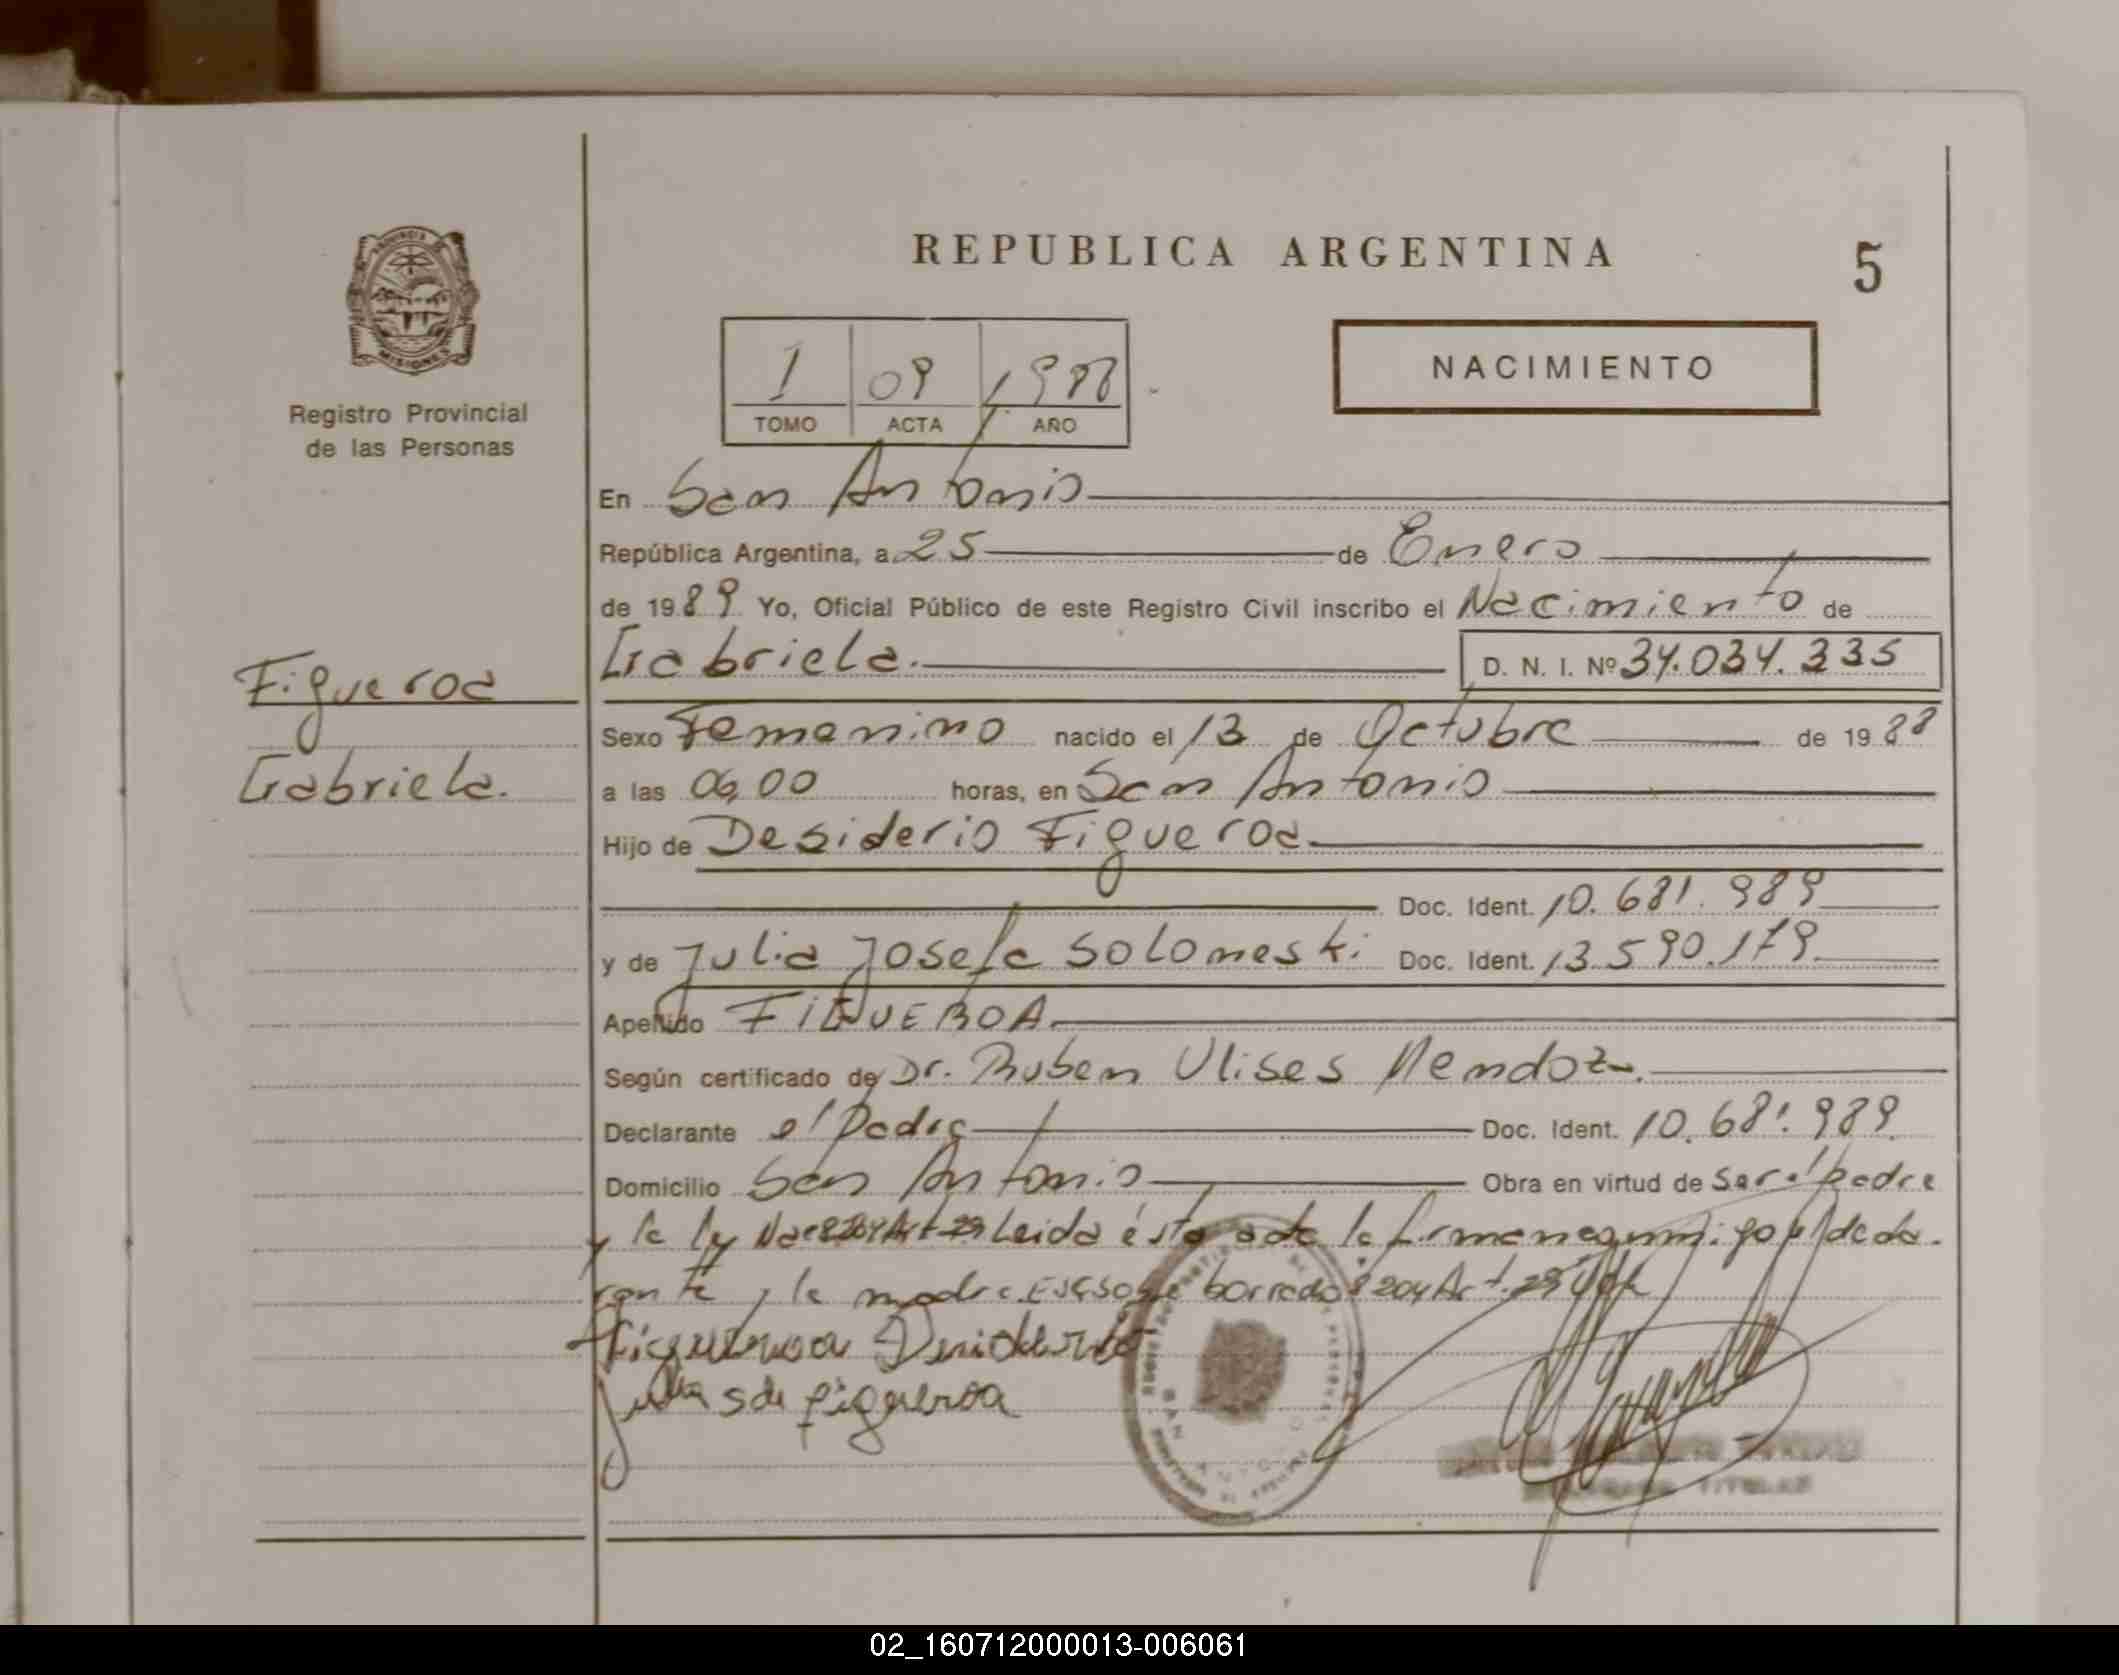 REPUBLICA ARGENTINA
5
PROVINCIA DE
MISIONES
Registro Provincial
de las Personas
1 09 1988
TOMO ACTA AÑO
NACIMIENTO
En San Antonio
República Argentina, a 25 de Enero
de 1989 Yo, Oficial Público de este Registro Civil inscribo el Nacimiento de
Gabriela. D. N. I. Nº 34.034.335
Figueroa
Sexo Femenino nacido el 13 de Octubre de 1988
Gabriela.
a las 06,00 horas, en San Antonio
Hijo de Desiderio Figueroa
Doc. Ident. 10.681.989
y de Julia Josefa Solomeski Doc. Ident. 13.590.179
Apellido FIGUEROA
Según certificado de Dr. Ruben Ulises Mendoza.
Declarante el Padre Doc. Ident. 10.681.989
Domicilio San Antonio Obra en virtud de Ser el padre
y la ley Nac 8204 Art 29 Leida ésta acta la firman conmigo el decla-
rante y la madre. borrado 8204 Art. 29 Vale
Figueroa Desiderio
Julia S de figueroa
SAN ANTONIO
TITULAR
02_160712000013-006061